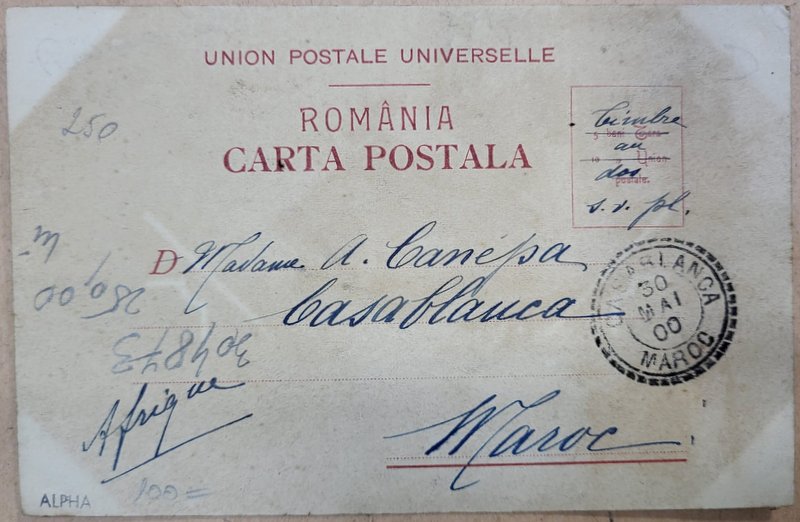 UNION POSTALE UNIVERSELLE
250
ROMÂNIA
CARTA POSTALA
5 bani Țara
10 Union
postale.
timbre
au
dos
s. v. pl.
D Madame A. Canépa
Casablanca
CASABLANCA
30
MAI
00
MAROC
M.
250,00
304873
Afrique
Maroc
100=
ALPHA